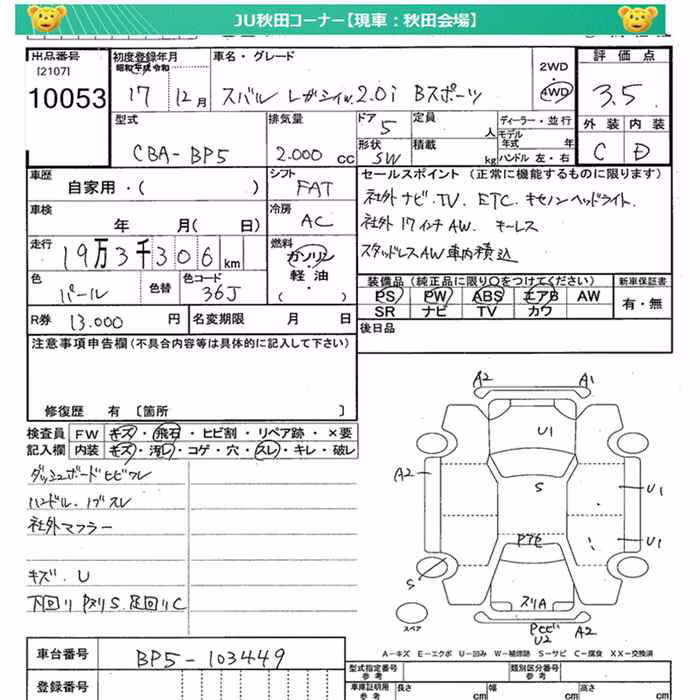 JU秋田コーナー【現車：秋田会場】
出品番号 初度登録年月 車名・グレード 2WD 評価点
[2107] 昭和 平成 令和
10053 17 12月 スバル レガシィW 2.0i Bスポーツ 4WD 3.5
型式 排気量 ドア 5 定員 人 ディーラー・並行 外装 内装
モデル年式 年
CBA-BP5 2.000 cc 形状 SW 積載 kg ハンドル 左・右 C D
車歴 シフト セールスポイント（正常に機能するものに限ります）
自家用・( ) FAT 社外ナビ.TV. ETC. キセノンヘッドライト.
車検 冷房 社外17インチAW. キーレス
年 月( 日) AC スタッドレスAW車内積込
走行 燃料
19万3千306km ガソリン
軽・油
( )
色 色替 色コード 装備品（純正品に限り○をつけてください） 新車保証書
パール 36J PS PW ABS エアB AW 有・無
SR ナビ TV カワ
R券 13.000 円 名変期限 月 日 後日品
注意事項申告欄（不具合内容等は具体的に記入して下さい）
修復歴 有 〔箇所 〕
検査員 FW キズ・飛石・ヒビ割・リペア跡・×要
記入欄 内装 キズ・汚レ・コゲ・穴・スレ・キレ・破レ
ダッシュボードヒビワレ
ハンドル.ノブスレ
社外マフラー
キズ.U
下回りPヌリS.足回りC
A2 A1
U1
A2 S U1
U1
S
スペア
スリA
U2 A2
A－キズ E－エクボ U－凹み W－補修跡 S－サビ C－腐食 XX－交換済
車台番号 BP5-103449
登録番号
型式指定番号 類別区分番号
参考 参考
車庫証明用 長さ 幅 高さ
参考 cm cm cm